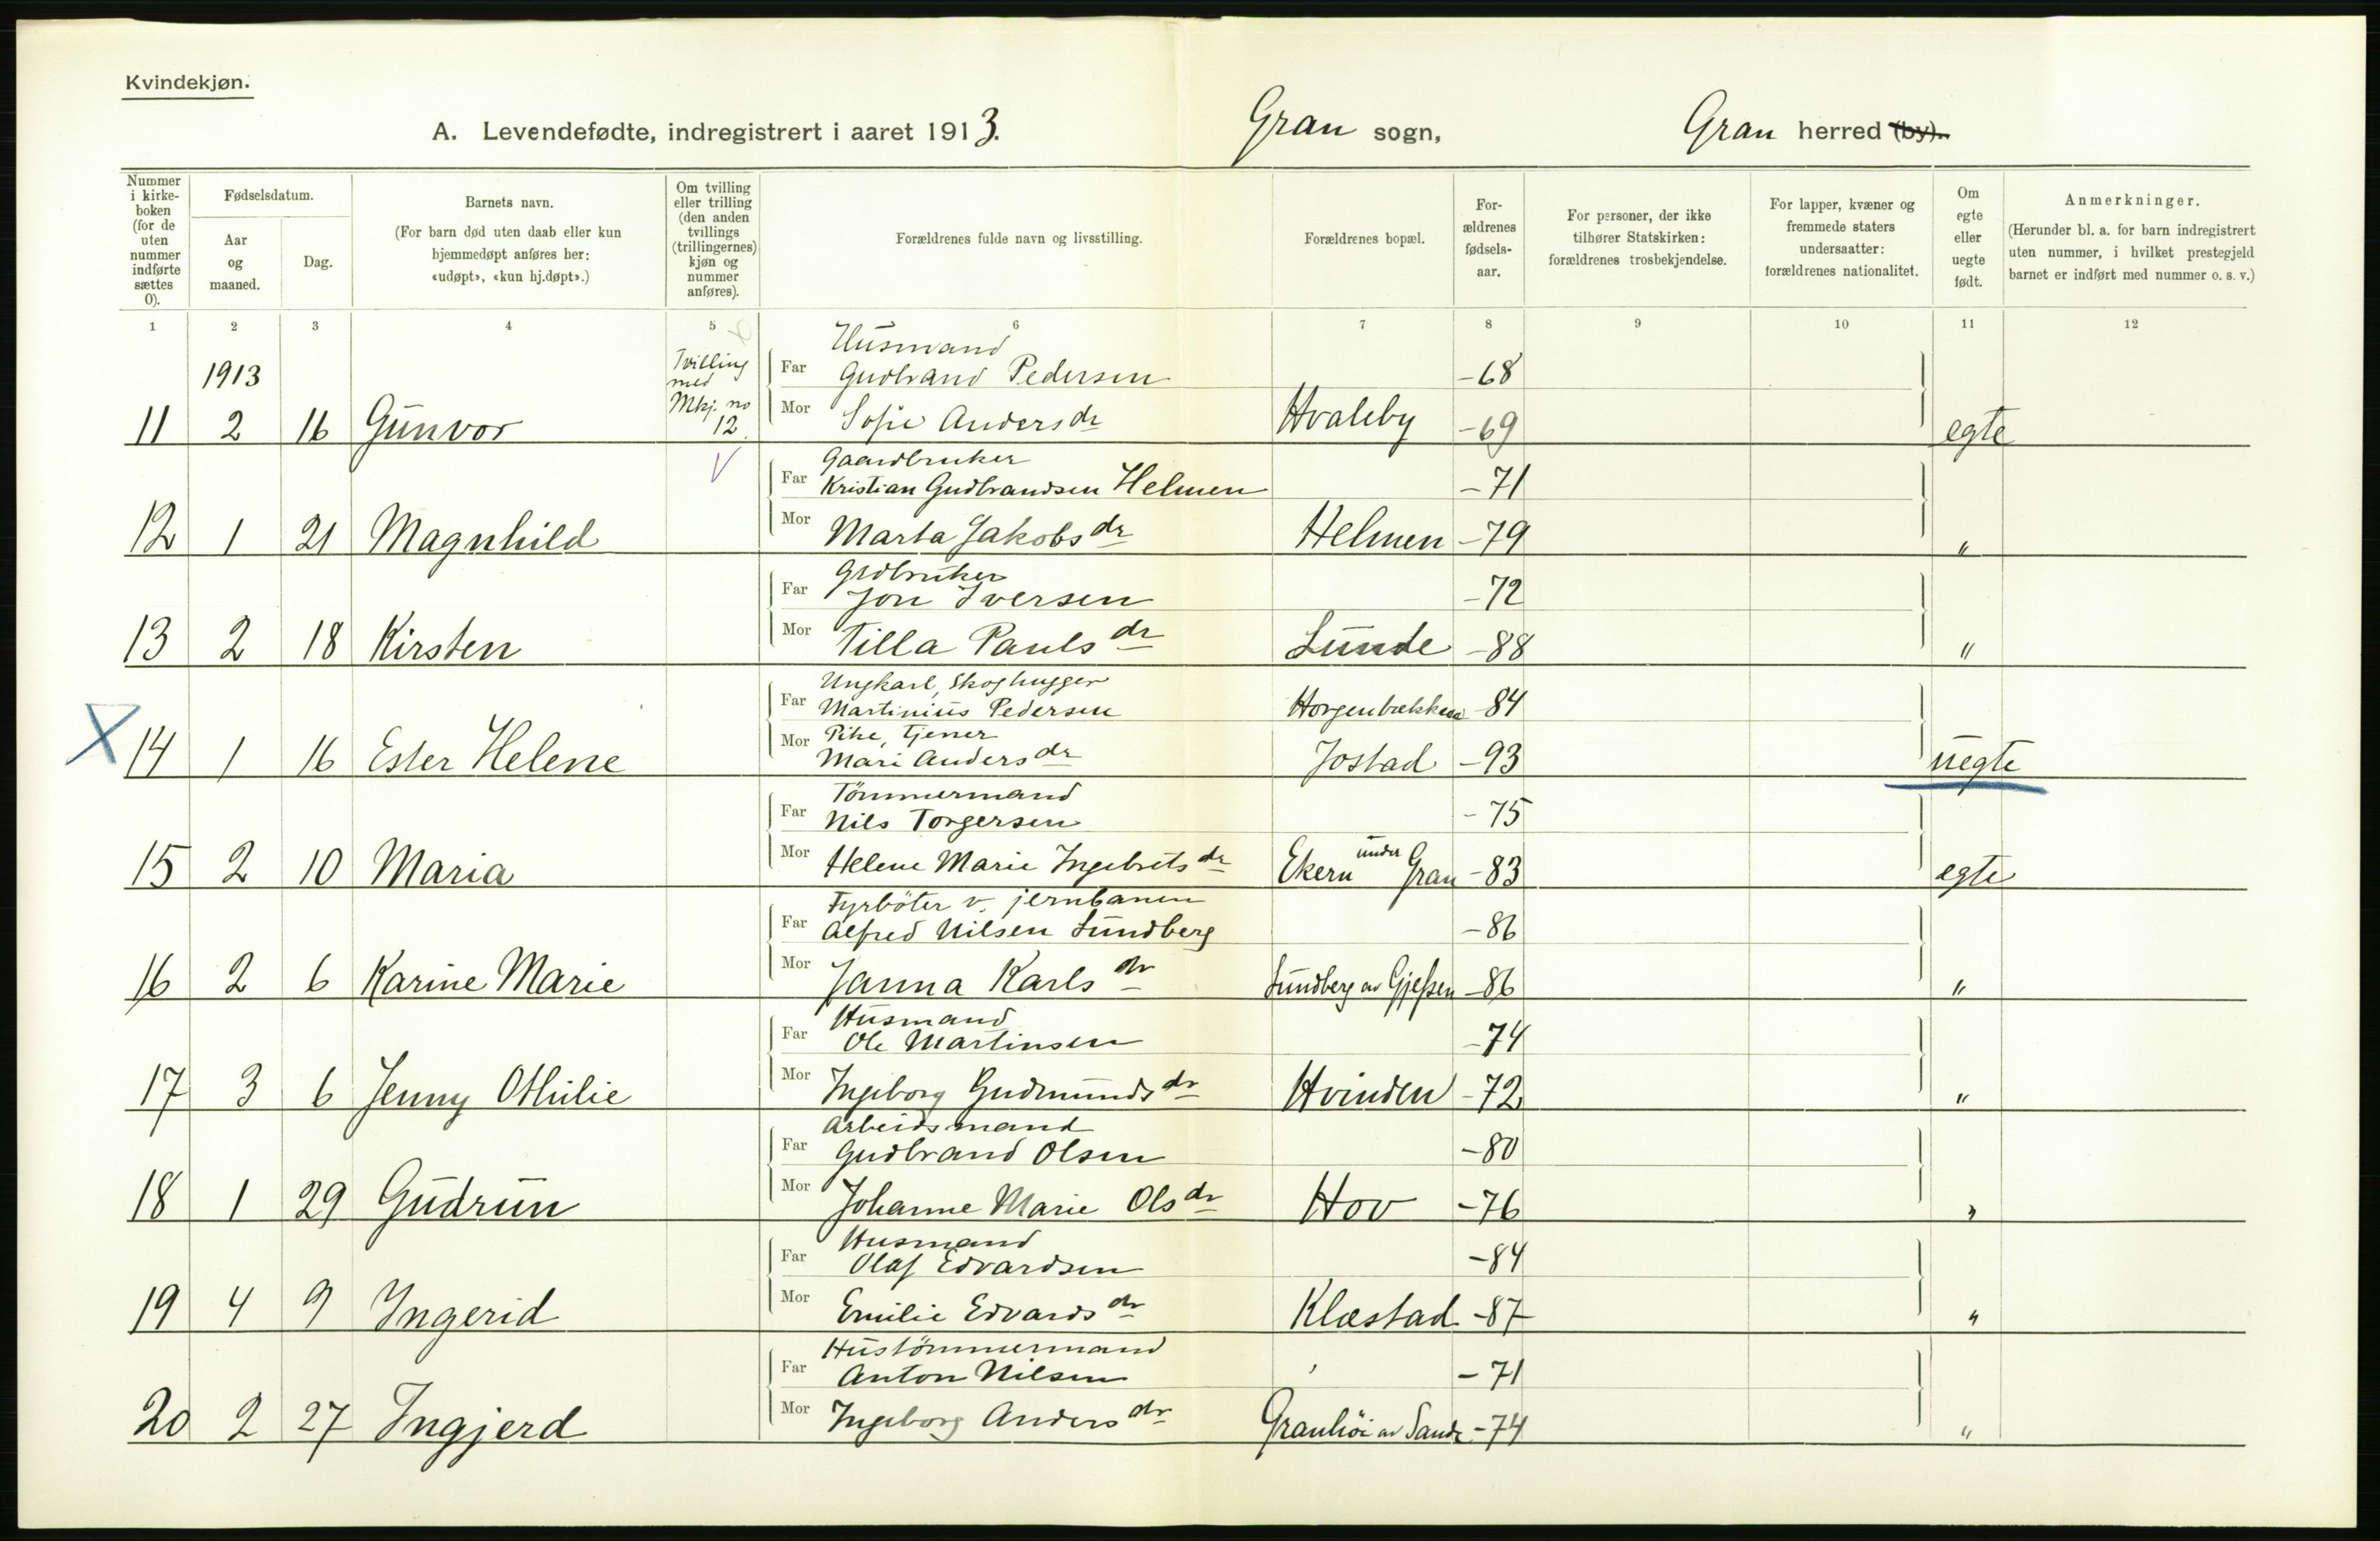 Kvindekjøn.
A. Levendefødte, indregistrert i aaret 1913. Gran sogn, Gran herred (by).
Nummer i kirke-boken (for de uten nummer indførte sættes 0).
Fødselsdatum.
Aar og maaned.
Dag.
Barnets navn.
(For barn død uten daab eller kun hjemmedøpt anføres her: «udøpt», «kun hj.døpt».)
Om tvilling eller trilling (den anden tvillings (trillingernes) kjøn og nummer anføres).
Forældrenes fulde navn og livsstilling.
Forældrenes bopæl.
For-ældrenes fødsels-aar.
For personer, der ikke tilhører Statskirken: forældrenes trosbekjendelse.
For lapper, kvæner og fremmede staters undersaatter: forældrenes nationalitet.
Om egte eller uegte født.
Anmerkninger.
(Herunder bl. a. for barn indregistrert uten nummer, i hvilket prestegjeld barnet er indført med nummer o. s. v.)
1 2 3 4 5 6 7 8 9 10 11 12
Husmand
1913 Tvilling med Far Gudbrand Pedersen -68
11 2 16 Gunvor Mkj. no 12. Mor Sofie Andersdr Hvaleby -69 egte
Gaardbruker
Far Kristian Gudbrandsen Helmen -71
12 1 21 Magnhild Mor Marta Jakobsdr Helmen -79 "
Grdbruker
Far Jon Iversen -72
13 2 18 Kirsten Mor Tilla Paulsdr Lunde -88 "
Ungkarl, Skoghugger
Far Martinius Pedersen Horgenbækken -84
Pike, Tjener
X 14 1 16 Ester Helene Mor Mari Andersdr Jostad -93 uegte
Tömmermand
Far Nils Torgersen -75
15 2 10 Maria Mor Helene Marie Ingebretsdr Ekern under Gran -83 egte
Fyrböter v. jernbanen
Far Alfred Nilsen Lundberg -86
16 2 6 Karine Marie Mor Janna Karlsdr Lundberg av Gjefsen -86 "
Husmand
Far Ole Martinsen -74
17 3 6 Jenny Othilie Mor Ingeborg Gudmundsdr Hvinden -72 "
Arbeidsmand
Far Gudbrand Olsen -80
18 1 29 Gudrun Mor Johanne Marie Olsdr Hov -76 "
Husmand
Far Olaf Edvardsen -84
19 4 9 Ingerid Mor Emilie Edvardsdr Klæstad -87 "
Hustömmermand
Far Anton Nilsen -71
20 2 27 Ingjerd Mor Ingeborg Andersdr Granhöi av Sande -74 "